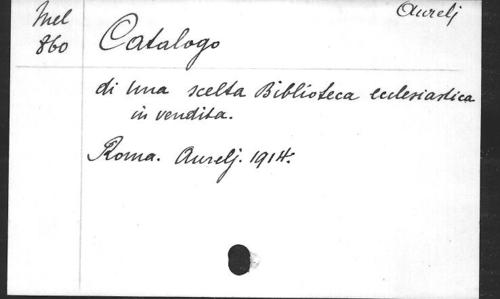 Mel
860
Aurelj
Catalogo
di una scelta Biblioteca ecclesiastica
in vendita.
Roma. Aurelj. 1914.